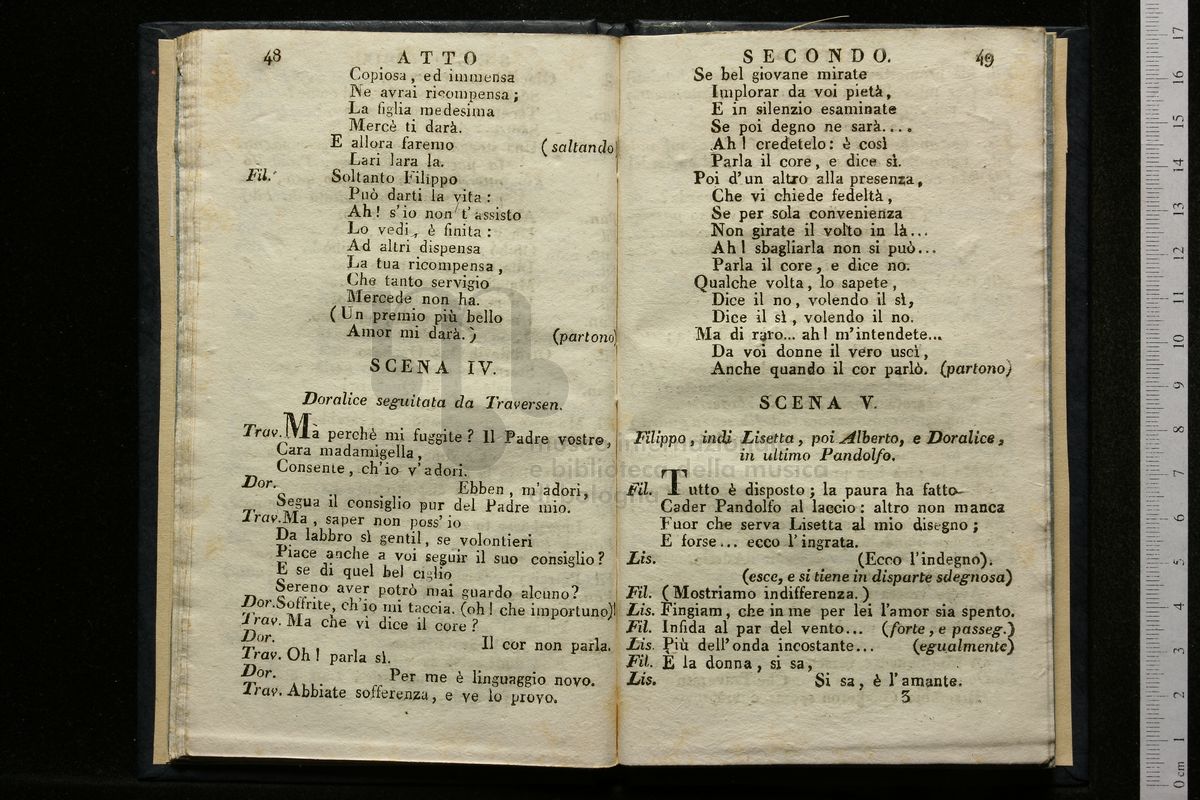 48 ATTO
Copiosa, ed immensa
Ne avrai ricompensa;
La figlia medesima
Mercè ti darà.
E allora faremo (saltando
Lari lara la.
Fil. Soltanto Filippo
Può darti la vita:
Ah! s'io non t'assisto
Lo vedi, è finita:
Ad altri dispensa
La tua ricompensa,
Che tanto servigio
Mercede non ha.
(Un premio più bello
Amor mi darà.) (partono)
SCENA IV.
Doralice seguitata da Traversen.
Trav. Mà perchè mi fuggite? Il Padre vostro,
Cara madamigella,
Consente, ch'io v'adori.
Dor. Ebben, m'adori,
Segua il consiglio pur del Padre mio.
Trav. Ma, saper non poss'io
Da labbro sì gentil, se volontieri
Piace anche a voi seguir il suo consiglio?
E se di quel bel ciglio
Sereno aver potrò mai guardo alcuno?
Dor. Soffrite, ch'io mi taccia. (oh! che importuno)!
Trav. Ma che vi dice il core?
Dor. Il cor non parla.
Trav. Oh! parla sì.
Dor. Per me è linguaggio novo.
Trav. Abbiate sofferenza, e ve lo provo.
SECONDO. 49
Se bel giovane mirate
Implorar da voi pietà,
E in silenzio esaminate
Se poi degno ne sarà....
Ah! credetelo: è così
Parla il core, e dice sì.
Poi d'un altro alla presenza,
Che vi chiede fedeltà,
Se per sola convenienza
Non girate il volto in là...
Ah! sbagliarla non si può...
Parla il core, e dice no.
Qualche volta, lo sapete,
Dice il no, volendo il sì,
Dice il sì, volendo il no.
Ma di raro... ah! m'intendete...
Da voi donne il vero uscì,
Anche quando il cor parlò. (partono)
SCENA V.
Filippo, indi Lisetta, poi Alberto, e Doralice,
in ultimo Pandolfo.
Fil. Tutto è disposto; la paura ha fatto
Cader Pandolfo al laccio: altro non manca
Fuor che serva Lisetta al mio disegno;
E forse... ecco l'ingrata.
Lis. (Ecco l'indegno).
(esce, e si tiene in disparte sdegnosa)
Fil. (Mostriamo indifferenza.)
Lis. Fingiam, che in me per lei l'amor sia spento.
Fil. Infida al par del vento... (forte, e passeg.)
Lis. Più dell'onda incostante... (egualmente)
Fil. È la donna, si sa,
Lis. Si sa, è l'amante.
3
museo internazionale
e biblioteca della musica
di bologna
0 cm 1 2 3 4 5 6 7 8 9 10 11 12 13 14 15 16 17